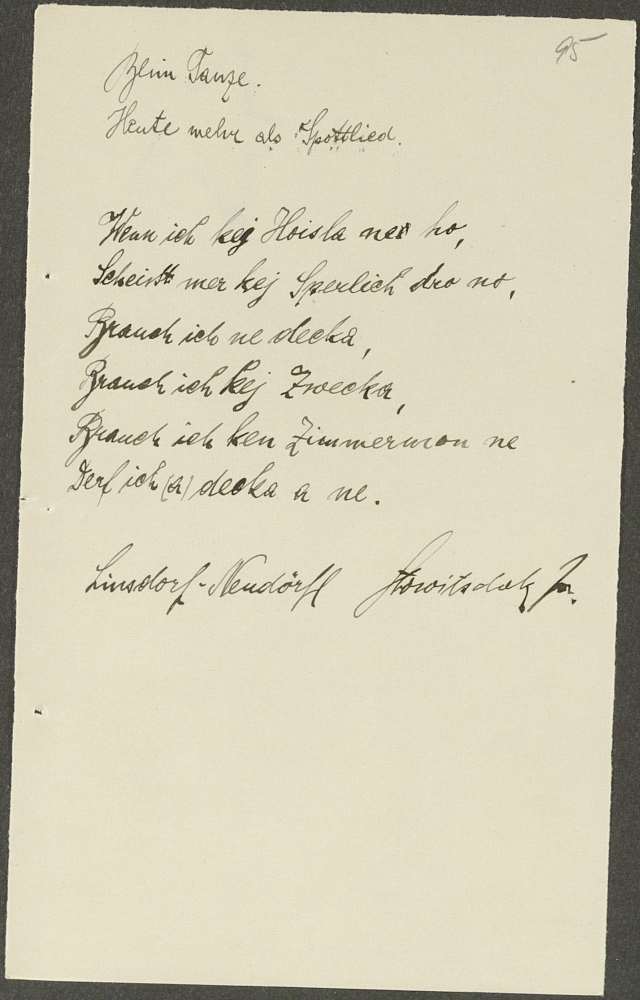 95
Beim Tanze.
Heute mehr als Spottlied.
Wenn ich kej Hoisla ne ho,
Scheisst mer kej Sperlich dro no,
Brauch ich ne decka,
Brauch ich kej Zwecka,
Brauch ich ken Zimmermon ne
Derf ich (a) decka a ne.
Linsdorf-Neudörfl